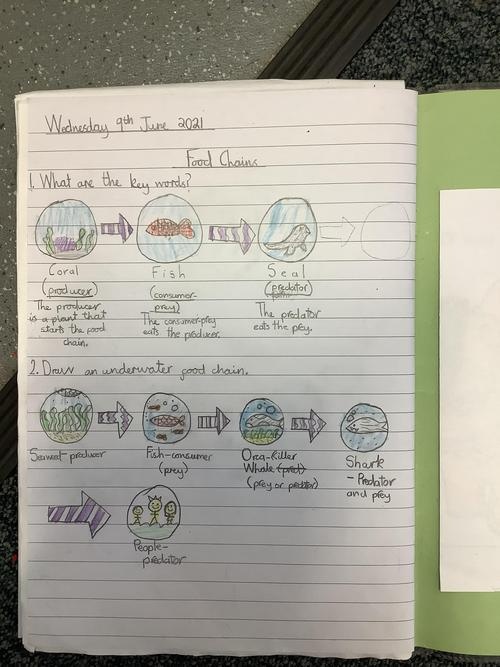 Wednesday 9th June 2021
Food Chains
1. What are the key words?
Coral
(producer)
The producer
is a plant that
starts the food
chain.
Fish
(consumer-
prey)
The consumer-prey
eats the producer.
Seal
(predator
The predator
eats the prey.
2. Draw an underwater food chain.
Seaweed-producer
Fish-consumer
(prey)
Orca-Killer
Whale (pred)
(prey or predator)
Shark
- Predator
and prey
People-
predator